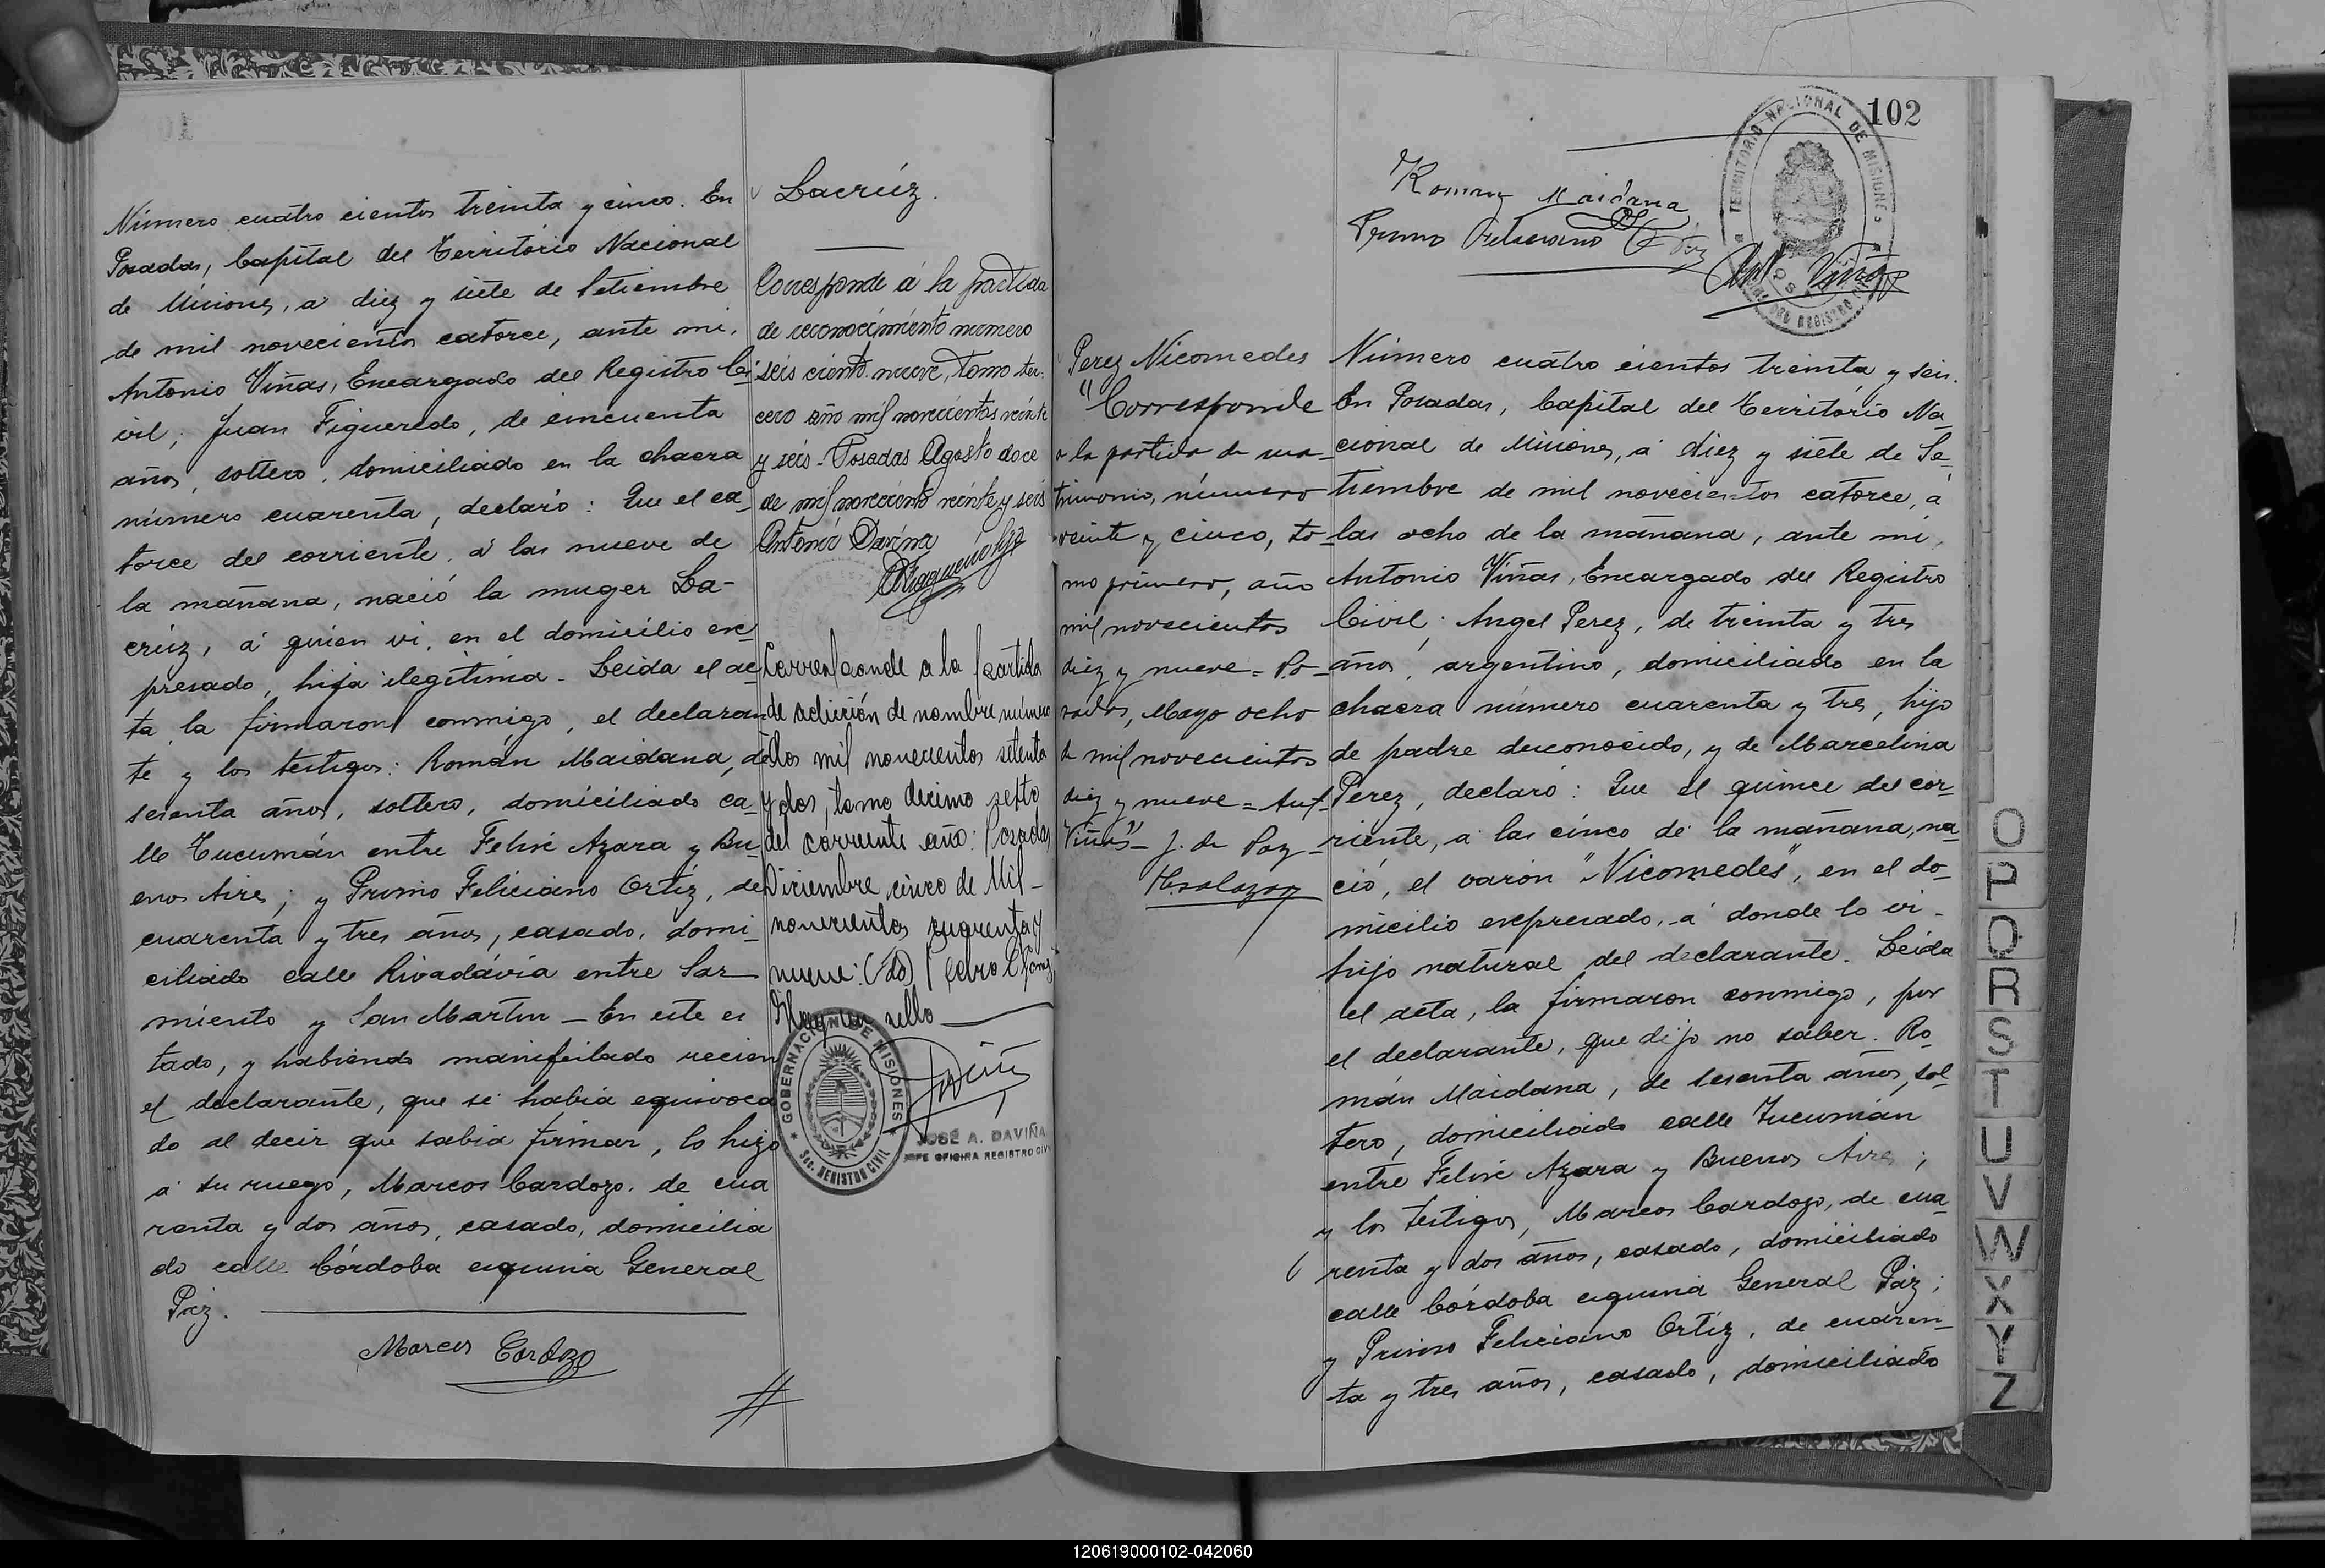 Número cuatro cientos treinta y cinco. En
Posadas, Capital del Territorio Nacional
de Misiones, a diez y siete de Setiembre
de mil novecientos catorce, ante mi,
Antonio Viñas, Encargado del Registro Ci-
vil; Juan Figueredo, de cincuenta
años, soltero, domiciliado en la chacra
número cuarenta, declaró: Que el ca-
torce del corriente, a las nueve de
la mañana, nació la muger La-
crúz, a quien vi, en el domicilio ex-
presado, hija ilegítima. Leida el ac-
ta, la firmaron conmigo, el declaran-
te y los testigos: Román Maidana, de
sesenta años, soltero, domiciliado ca-
lle Tucumán entre Felix Azara y Bu-
enos Aires; y Primo Feliciano Ortíz, de
cuarenta y tres años, casado, domi-
ciliado calle Rivadávia entre Sar-
miento y San Martin — En este es
tado, y habiendo manifestado recien
el declarante, que se habia equivoca
do al decir que sabia firmar, lo hizo
a su ruego, Marcos Cardozo, de cua
renta y dos años, casado, domicilia
do calle Córdoba esquina General
Paz.
Marcos Cardozo
Lacrúz.
Corresponde á la partida
de reconocimiento número
seis ciento nueve, tomo ter-
cero año mil novecientos veinte
y seis - Posadas Agosto doce
de mil novecientos veinte y seis
Antonio Daviña
Corresponde a la partida
de adición de nombre número
dos mil novecientos setenta
y dos, tomo décimo sexto
del corriente año: Posadas
Diciembre cinco de Mil-
novecientos cuarenta y
nueve: (Fdo) Pedro C.
Hay un sello
GOBERNACION DE MISIONES
SEC. REGISTRO CIVIL
JOSÉ A. DAVIÑA
JEFE OFICINA REGISTRO CIVIL
102
TERRITORIO NACIONAL DE MISIONES
Roman Maidana
Primo Feliciano Ortiz
Ant Viñas
Perez Nicomedes
"Corresponde
a la partida de ma-
trimonio, número
veinte y cinco, to-
mo primero, año
mil novecientos
diez y nueve = Po-
sadas, Mayo ocho
de mil novecientos
diez y nueve = Ant
Viñas" - J. de Paz -
Número cuatro cientos treinta y seis.
En Posadas, Capital del Territorio Na-
cional de Misiones, a diez y siete de Se-
tiembre de mil novecientos catorce, á
las ocho de la mañana, ante mi,
Antonio Viñas, Encargado del Registro
Civil; Angel Perez, de treinta y tres
años, argentino, domiciliado en la
chacra número cuarenta y tres, hijo
de padre desconocido, y de Marcelina
Perez, declaró: Que el quince del cor-
riente, a las cinco de la mañana, na-
ció, el varón "Nicomedes", en el do-
micilio expresado, a donde lo vi.
hijo natural del declarante. Leida
el acta, la firmaron conmigo, por
el declarante, que dijo no saber. Ro-
mán Maidana, de sesenta años, sol-
tero, domiciliado calle Tucumán
entre Felix Azara y Buenos Aires;
y los testigos, Marcos Cardozo, de cua-
renta y dos años, casado, domiciliado
calle Córdoba esquina General Paz;
y Primo Feliciano Ortíz, de cuaren-
ta y tres años, casado, domiciliado
O
P
Q
R
S
T
U
V
W
X
Y
Z
120619000102-042060